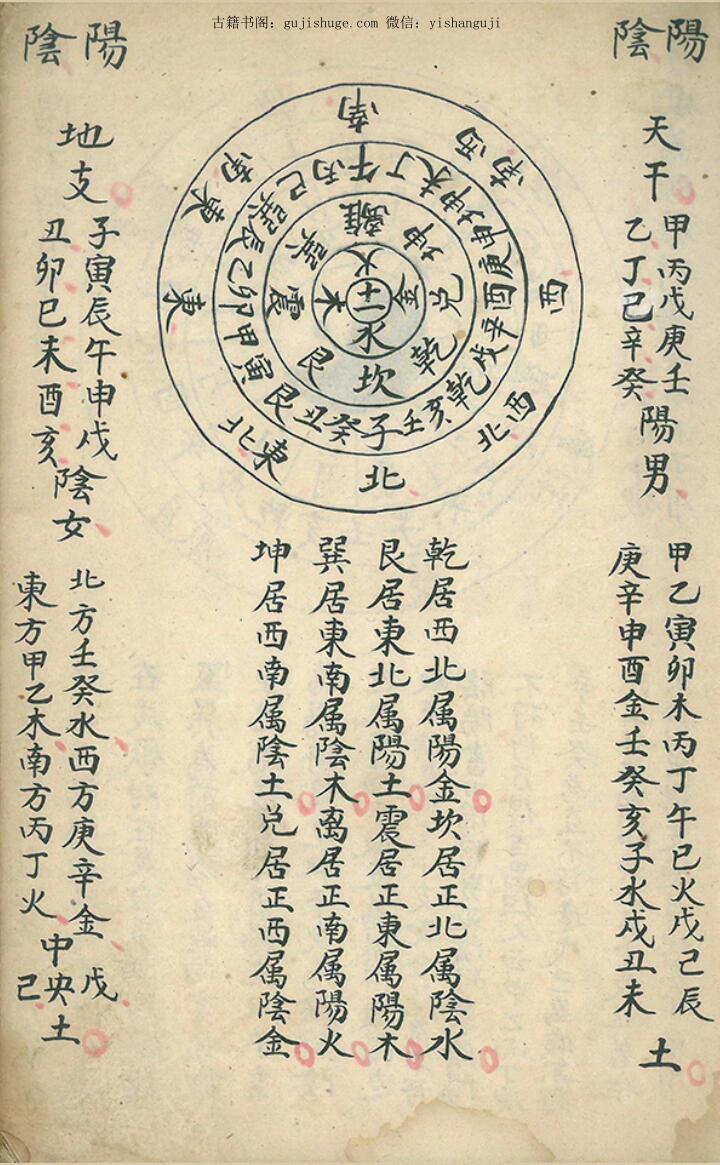 古籍书阁：gujishuge.com 微信：yishanguji
陰陽
天干
甲丙戊庚壬
乙丁己辛癸
陽男
甲乙寅卯木丙丁午巳火戊己辰
庚辛申酉金壬癸亥子水戌丑未
土
南
西南
西
西北
北
東北
東
東南
午丁未坤申庚酉辛戌乾亥壬子癸丑艮寅甲卯乙辰巽巳丙
離坤兑乾坎艮震巽
火金水木
土
乾居西北属陽金坎居正北属陰水
艮居東北属陽土震居正東属陽木
巽居東南属陰木离居正南属陽火
坤居西南属陰土兑居正西属陰金
陰陽
地支
子寅辰午申戌
丑卯巳未酉亥
陰女
北方壬癸水西方庚辛金
東方甲乙木南方丙丁火
中央
戊
己
土